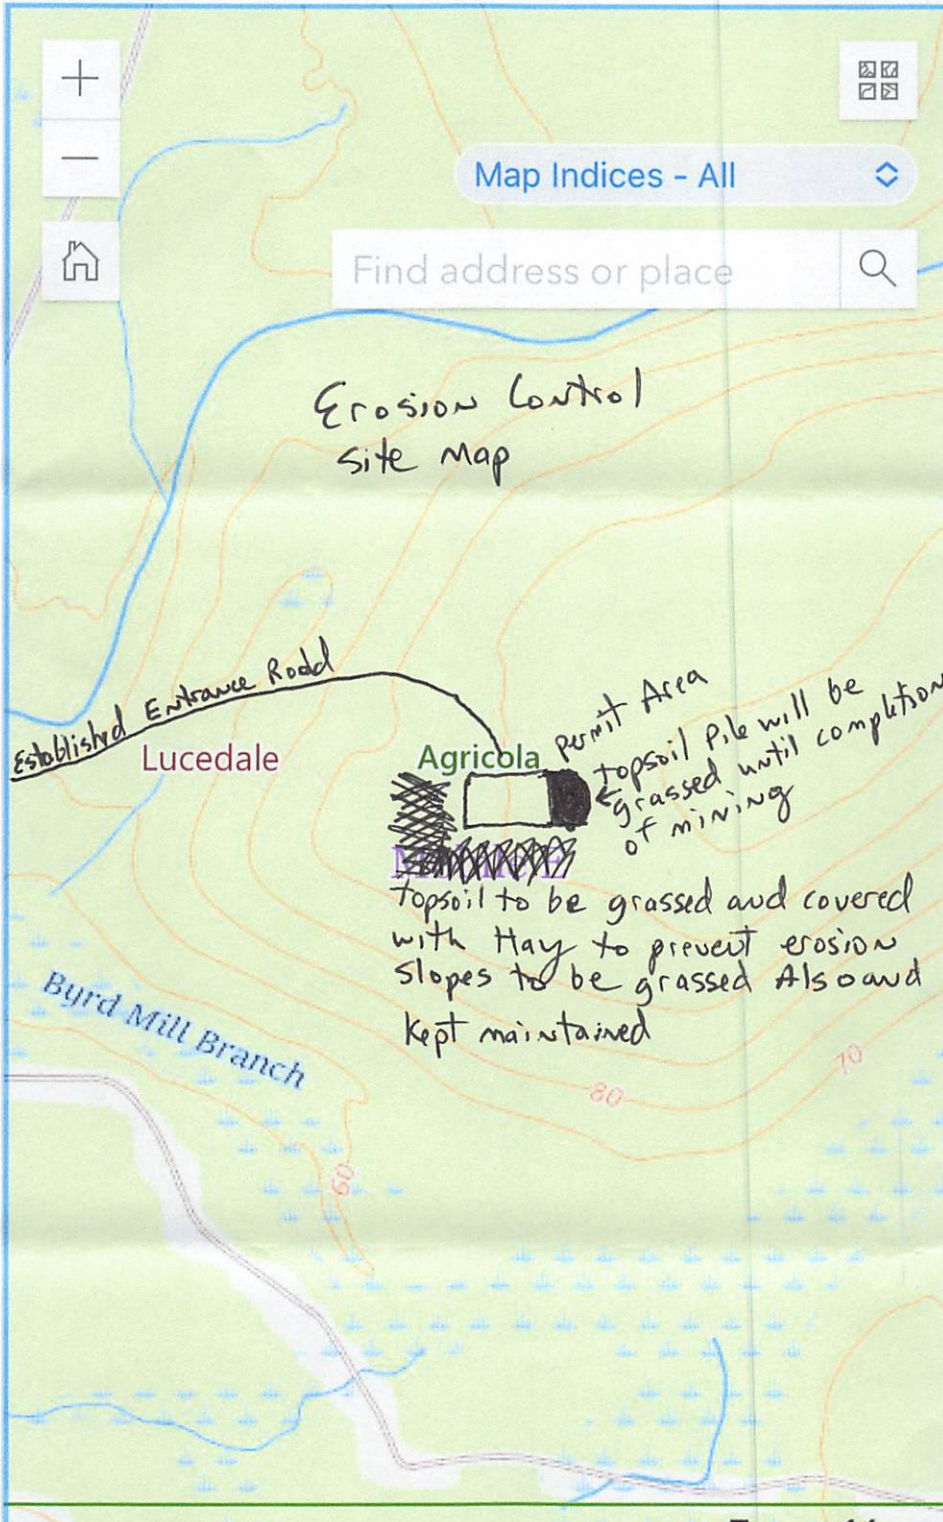 Map Indices - All
Find address or place
Erosion Control
Site Map
Established Entrance Rodd
Lucedale
Agricola
permit Area
topsoil Pile will be
grassed until completion
of mining
topsoil to be grassed and covered
with Hay to prevent erosion
slopes to be grassed Also and
kept maintained
Byrd Mill Branch
80
70
60